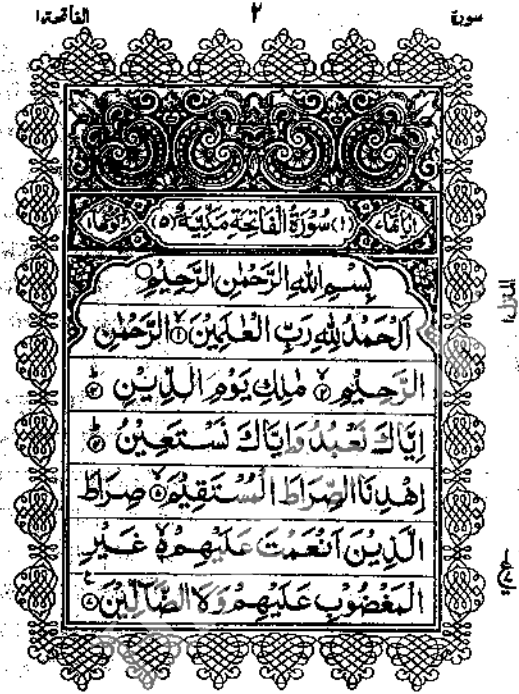 سورة ٢ الفاتحة ١
سُوْرَةُ الْفَاتِحَةِ مَكِّيَّةٌ (٥)
بِسْمِ اللهِ الرَّحْمٰنِ الرَّحِيْمِ
اَلْحَمْدُ لِلّٰهِ رَبِّ الْعٰلَمِيْنَ ۙ﴿١﴾ الرَّحْمٰنِ
الرَّحِيْمِ ۙ﴿٢﴾ مٰلِكِ يَوْمِ الدِّيْنِ ؕ﴿٣﴾
اِيَّاكَ نَعْبُدُ وَاِيَّاكَ نَسْتَعِيْنُ ؕ﴿٤﴾
اِهْدِنَا الصِّرَاطَ الْمُسْتَقِيْمَ ۙ﴿٥﴾ صِرَاطَ
الَّذِيْنَ اَنْعَمْتَ عَلَيْهِمْ ۙ٦ غَيْرِ
الْمَغْضُوْبِ عَلَيْهِمْ وَلَا الضَّآلِّيْنَ ﴿٧﴾
المنزل ١